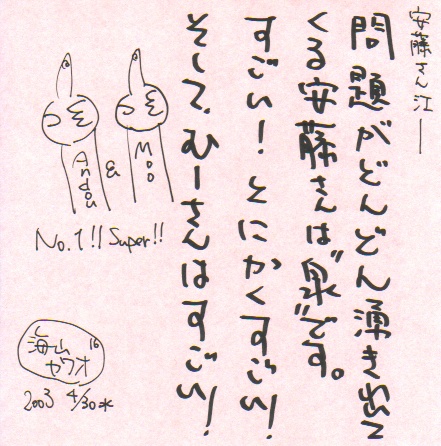 安藤さん江
問題がどんどん湧き出て
くる安藤さんは〝泉〟です。
すごい！とにかくすごい！
そして、むーさんはすごい！
Andou & Moo
No.1!! Super!!
16
海山
ヤワオ
2003 4/30水